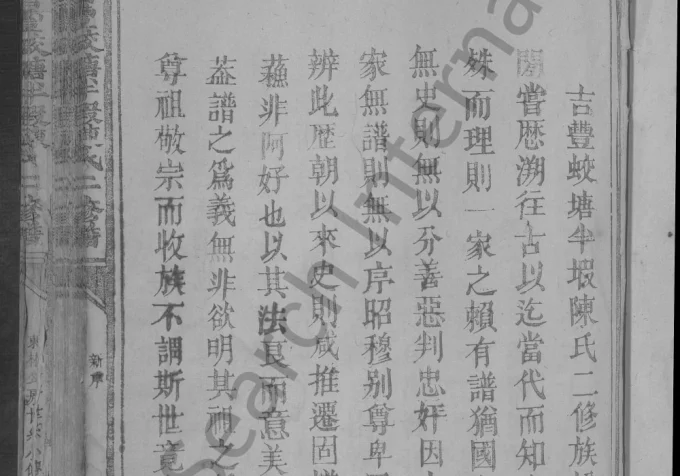 古豊蛟塘半塅陳氏二修族
嘗歴溯往古以迄當代而知
殊而理則一家之賴有譜猶國
無史則無以分善惡判忠奸因
家無譜則無以序昭穆别尊卑
辨此歴朝以來史則咸推遷固
蘓非阿好也以其法良而意美
葢譜之爲義無非欲明其祖之
尊祖敬宗而收族不謂斯世竟
新
蛟塘半塅陳氏二修譜
Search Interna